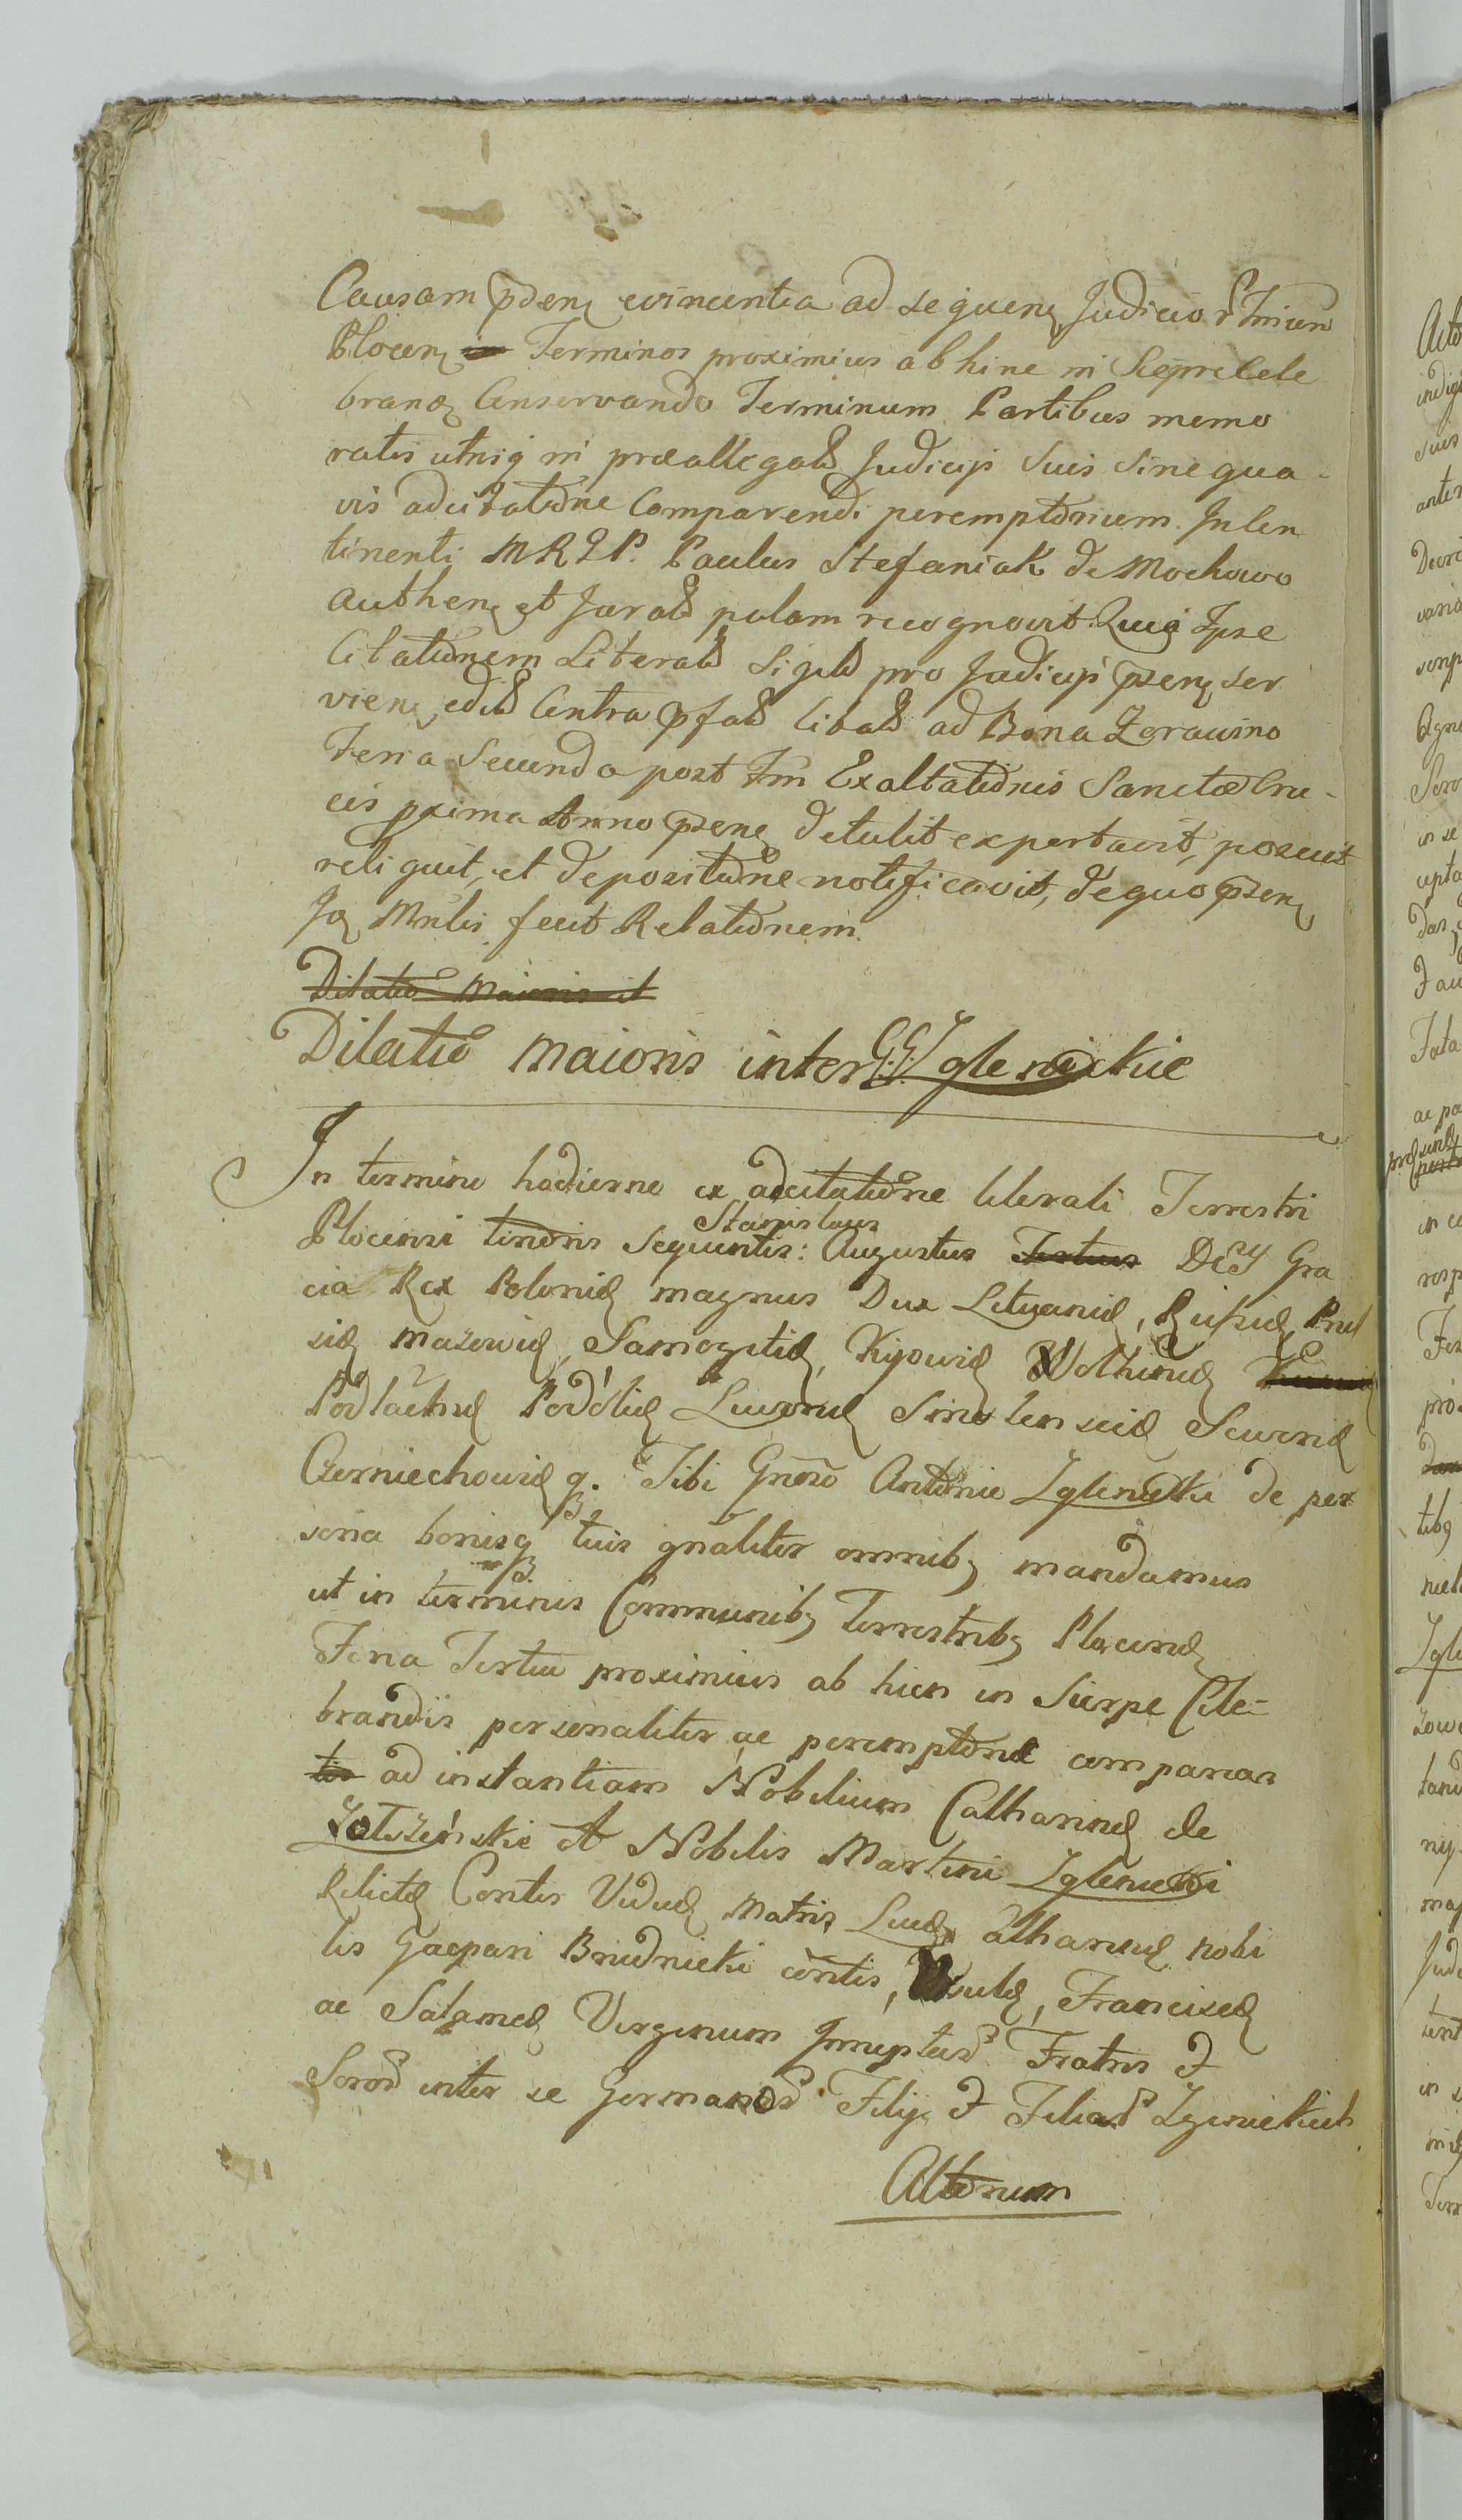 Causam pseng evincentia ad sequeng Judicior Tmium
Plocen in Terminos proximius ab hinc in Sieprc Cele
brand Conservando Terminum Partibus memo
ratis utriq in praeallegatis Judicijs suis sine qua-
vis adcitatione Comparendi peremptorium. In Con
tinenti MRJP. Paulus Stefaniak de Mochowo
Authen et Jurat palam recognovit. Quia Ipse
Citationem Literal Sigil pro Judicijs psen ser
vien edit Contra pfat Citat ad Bona Zorawino
Feria Secunda post Fm Exaltationis Sanctae Cru-
cis pxima Anno psen detulit exportavit, posuit
reliquit, et depositione notificavit, de quo psen
Jq Mnlis fecit Relationem.
Dilatio Maioris it
Dilatio maioris inter G.G. Iglenickie
In termino hodierno ex adcitatione literali Terrestri
Stanislaus
Plocensi tenoris sequentis: Augustus Tertius DEI Gra
cia Rex Poloniae magnus Dux Lituaniae, Russiae, Prus
siae Mazowiae, Samogitiae, Kijowiae Wolhiniae
Podlachiae Podoliae Livoniae Smolensciae Severiae
Czerniechowiaeq. Tibi Gnoso Antonio Iglenicki de per
sona bonisq tuis gnaliter omnib mandamus
ut in terminis Communib Terrestrib Plocen
Feria Tertia proximius ab hinc in Sierpc Cele-
brandis personaliter ac peremptorie compareas
tis ad instantiam Nobilium Catharinae de
Zotszeńskie et Nobilis Martini Iglenicki
Relictae Contis Viduae Matris, Lucae, atharinae nobi
lis Gaspari Brudnicki contis, Ursulae, Franciscae
ac Salomeae Virginum Innuptar Fratris et
Soror inter se Germanor Filij et Filiar Iglenickich
Actorum